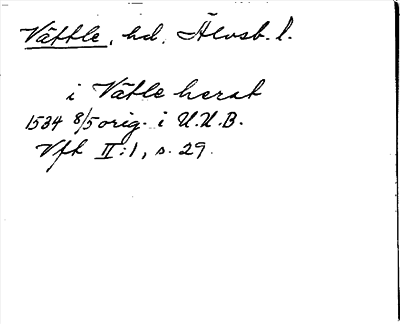 Vättle, hd, Älvsb. l.
i Vätle herat
1534 8/5 orig. i U.U.B.
Vfh II:1, s. 29.